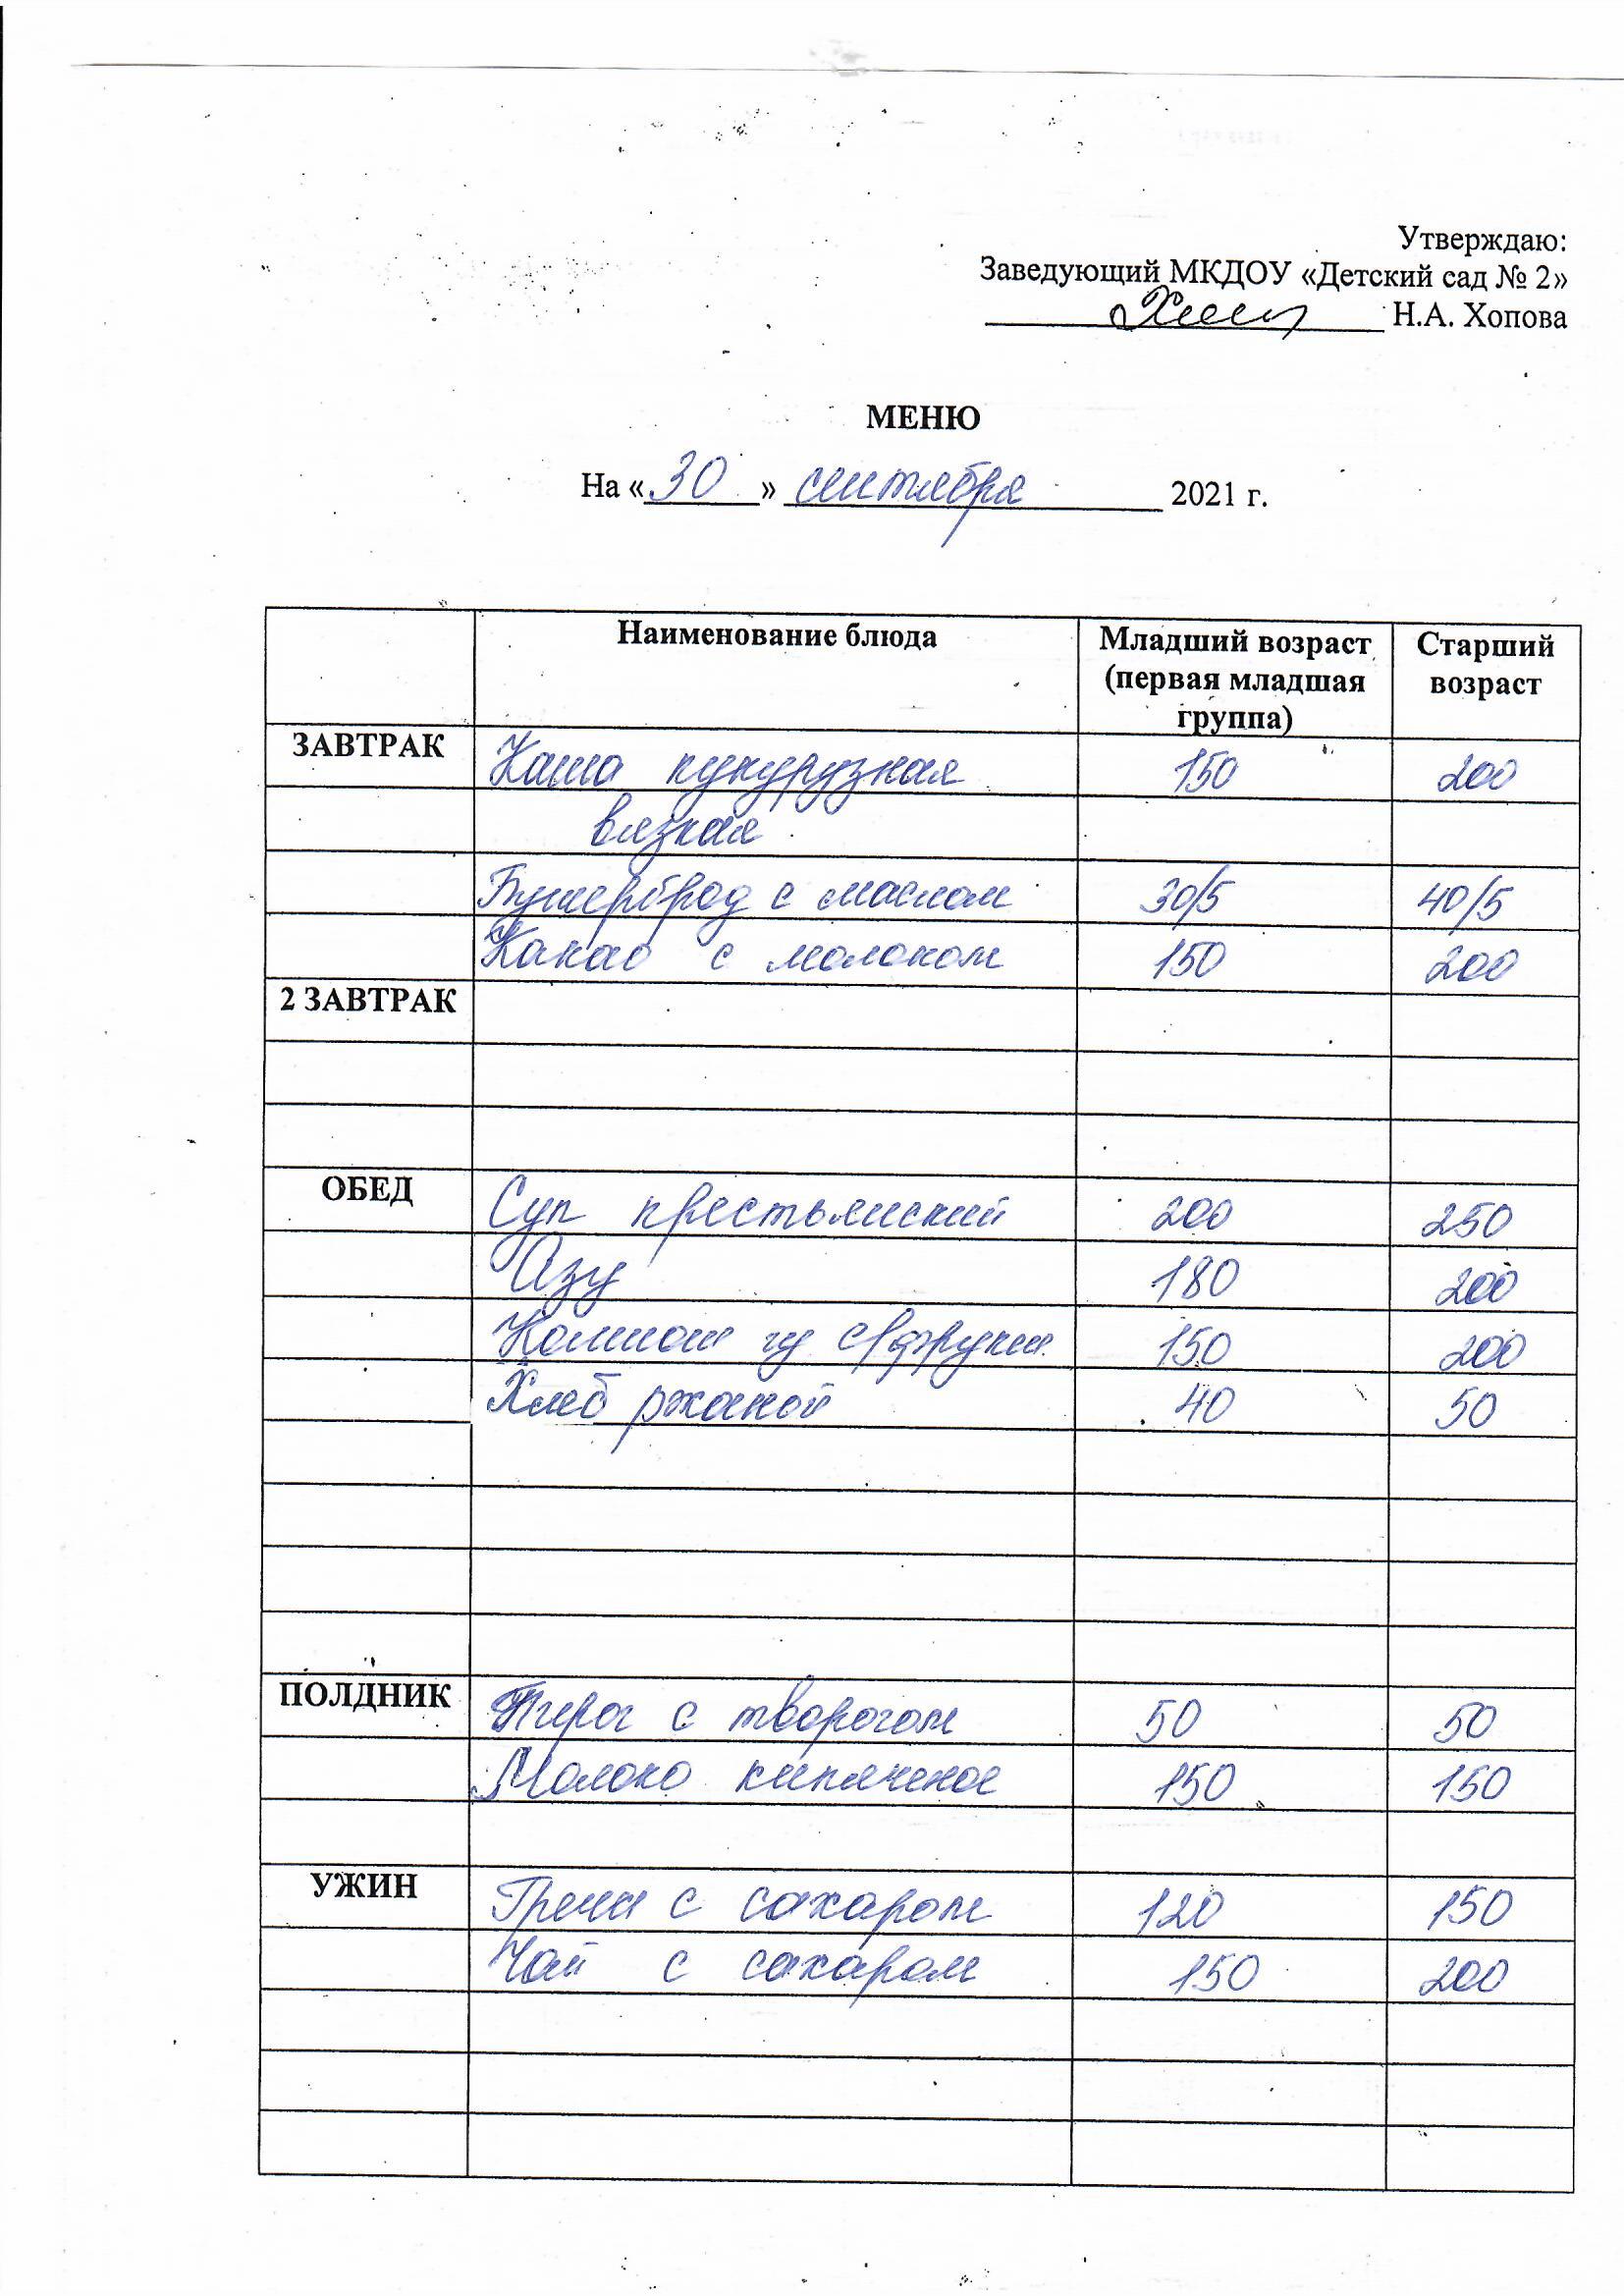 Утверждаю:
Заведующий МКДОУ «Детский сад № 2»
Н.А. Хопова
МЕНЮ
На «30» сентября 2021 г.
Наименование блюда Младший возраст (первая младшая группа) Старший возраст
ЗАВТРАК Каша кукурузная 150 200
вязкая
Бутерброд с маслом 30/5 40/5
Какао с молоком 150 200
2 ЗАВТРАК
ОБЕД Суп крестьянский 200 250
Азу 180 200
Компот из с/фрукт. 150 200
Хлеб ржаной 40 50
ПОЛДНИК Пирог с творогом 50 50
Молоко кипяченое 150 150
УЖИН с сахаром 120 150
Чай с сахаром 150 200